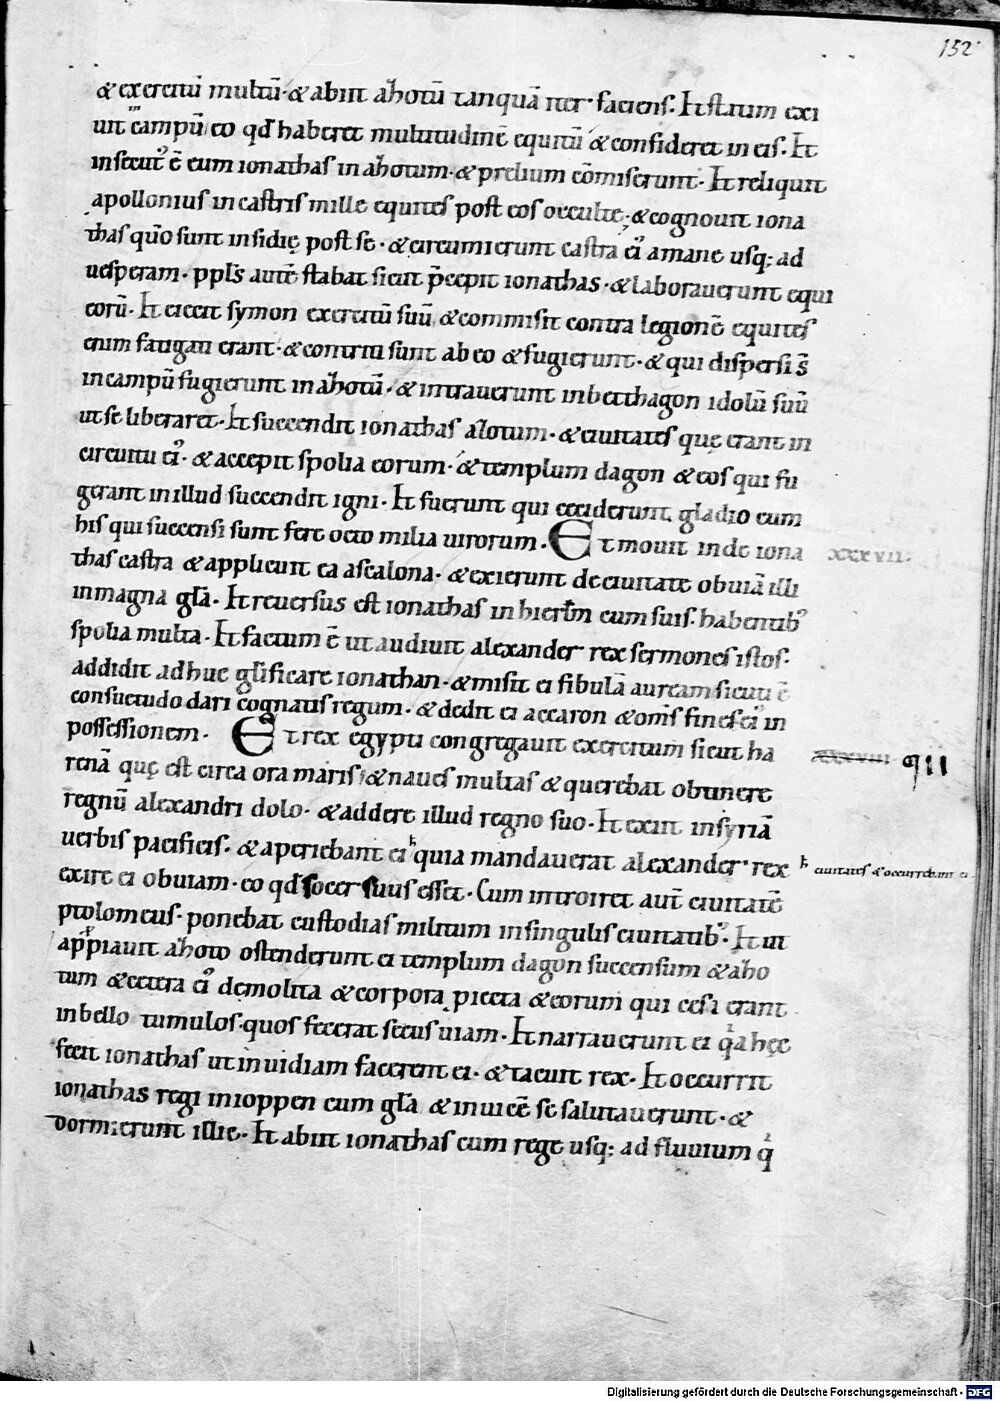 152
& exercitū multū· & abiit aƶhotū tanquā iter faciens. Et statim exi
uit ī campū eo qđ haberet multitudinē equitū & consideret in eis. Et
insecut᾽ ē eum ionathas in aƶhotum· & prelium cōmiserunt· Et reliquit
apollonius in castris mille equites post eos occulte· & cognouit iona
thas quō sunt insidię post se· & circumierunt castra ei᾽ a mane usq; ad
uesperam· ppl̄s autē stabat sicut p̄cepit ionathas· & laborauerunt equi
eorū· Et eiecit symon exercitū suū & commisit contra legionē equites
enim fatigati erant· & contriti sunt ab eo & fugierunt· & qui dispersi s̄
in campū fugierunt in aƶhotū· & intrauerunt in bethdagon idolū suū
ut se liberaret· Et succendit ionathas aƶotum· & ciuitates quę erant in
circuitu ei᾽· & accepit spolia eorum· & templum dagon & eos qui fu
gerant in illud succendit igni· Et fuerunt qui ceciderunt gladio cum
his qui succensi sunt fere octo milia uirorum· Et mouit inde iona
xxxvii·
thas castra & applicuit ea ascalona· & exierunt de ciuitate obuiā illi
in magna gl̄a· Et reuersus est ionathas in hierl̄m cum suis· habentib᾽
spolia multa· Et factum ē ut audiuit alexander rex sermones istos·
addidit adhuc gl̄ificare ionathan· & misit ei fibulā auream sicuti ē
consuetudo dari cognatis regum· & dedit ei accaron & om̄s fines ei᾽ in
possessionem· Et rex egypti congregauit exercitum sicut ha
xxxviii
renā quę est circa ora maris & naues multas & querebat obtinere
regnū alexandri dolo· & addere illud regno suo· Et exiit in syriā
uerbis pacificis· & aperiebant ei quia mandauerat alexander rex
ciuitates & occurrebant ei
exire ei obuiam· eo qđ socer suus esset· Cum introiret aut̄ ciuitatē
ptolomeus· ponebat custodias militum in singulis ciuitatib᾽· Et ut
appiauit aƶhoto ostenderunt ei templum dagon succensum & aƶho
tum & cetera ei᾽ demolita & corpora piecta & eorum qui cesi erant
in bello tumulos· quos fecerat secus uiam· Et narrauerunt ei qa hęc
fecit ionathas ut inuidiam facerent ei· & tacuit rex· Et occurrit
ionathas regi in ioppen cum gl̄a & inuicē se salutauerunt· &
dormierunt illic· Et abiit ionathas cum rege usq; ad fluuium q
Digitalisierung gefördert durch die Deutsche Forschungsgemeinschaft - DFG